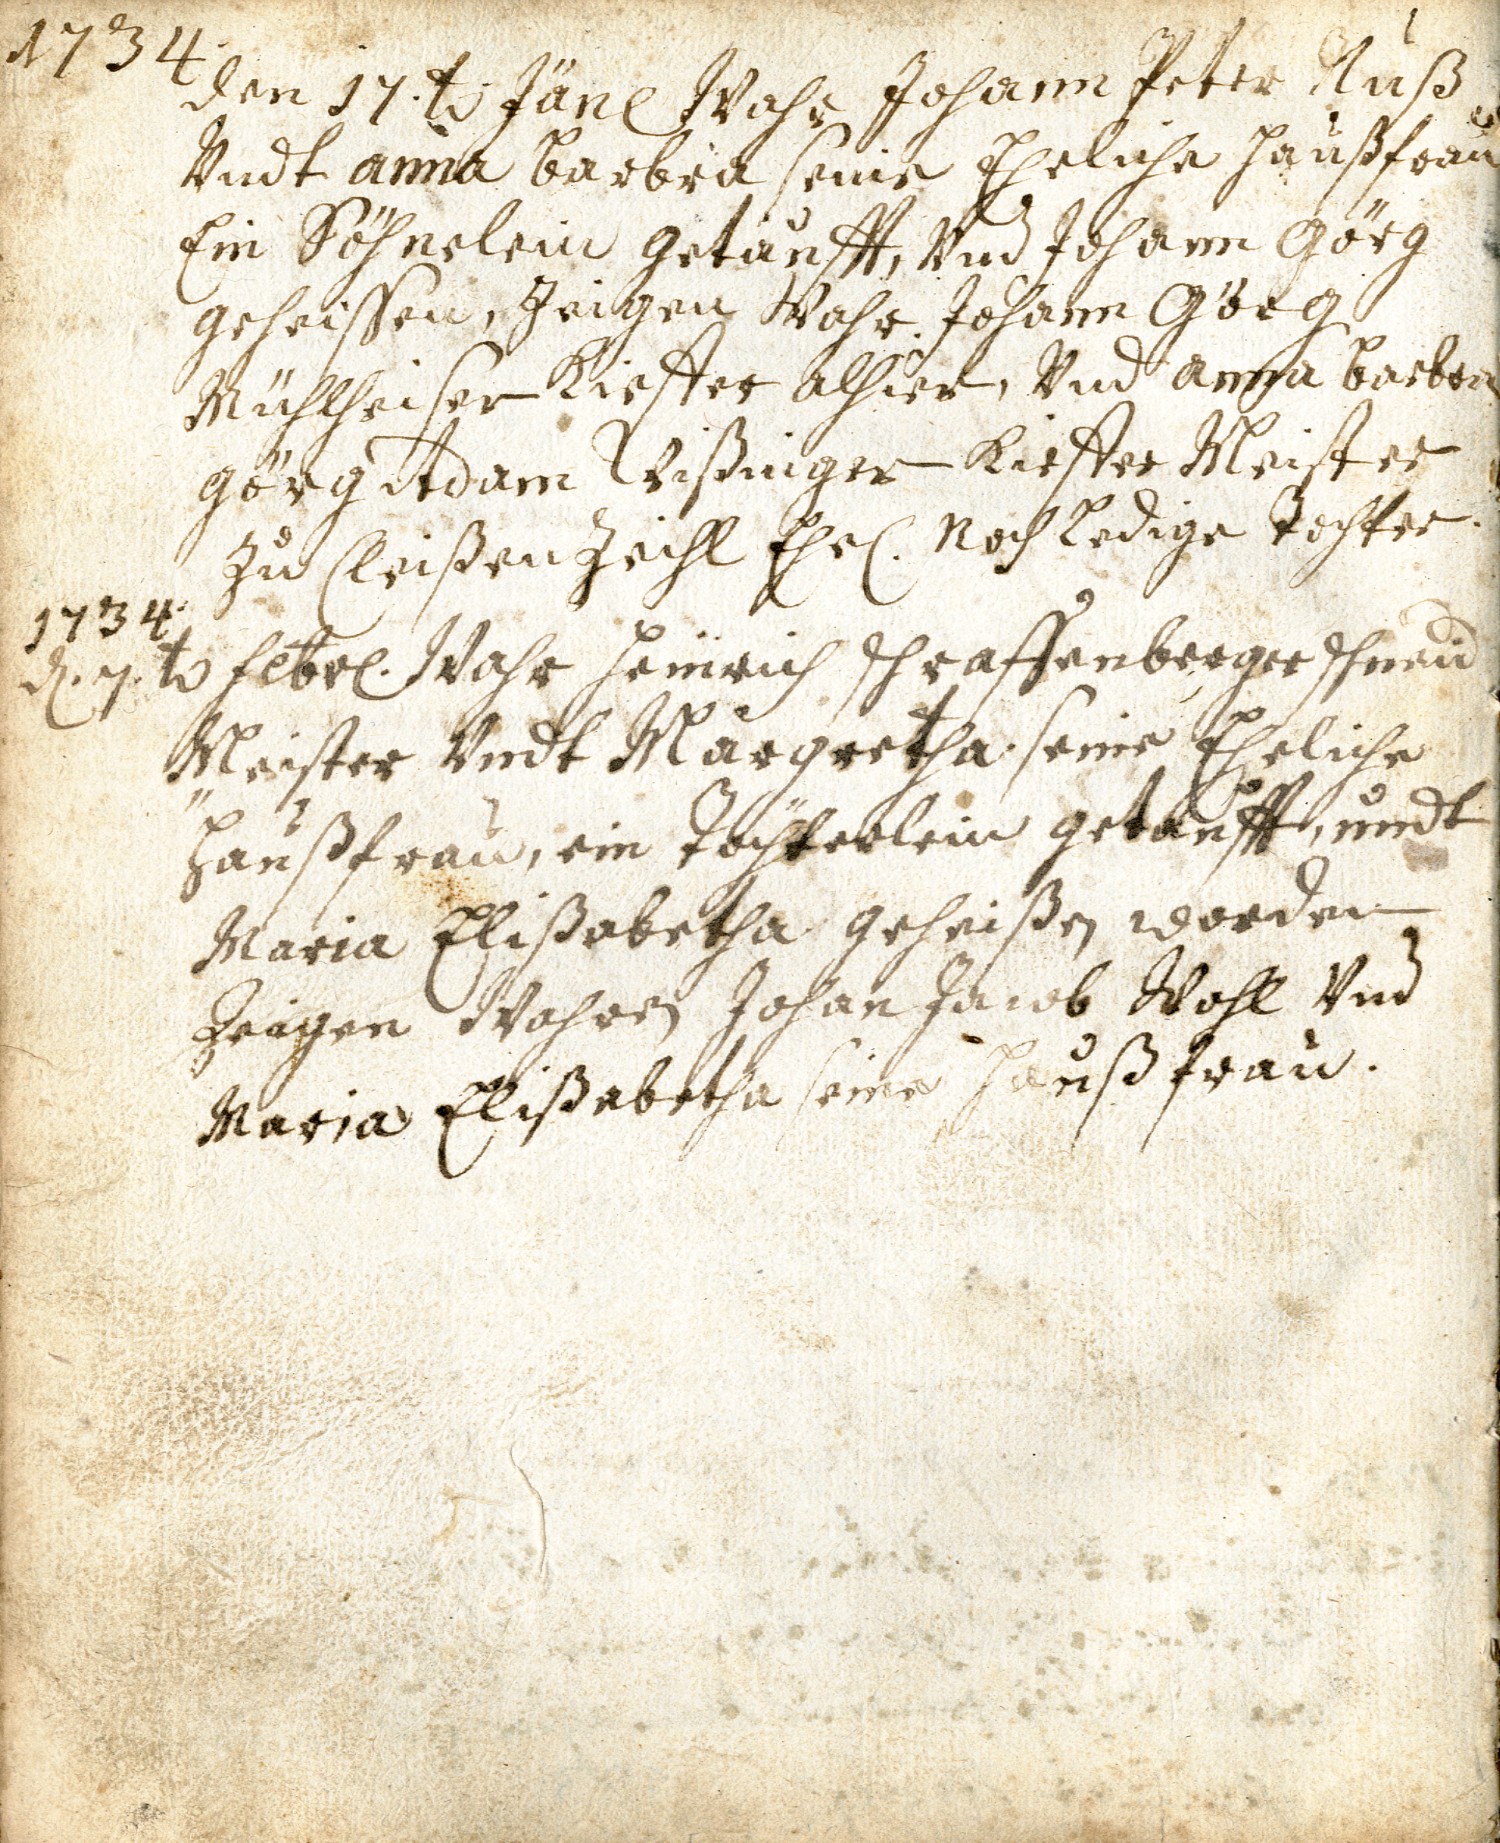 1734.
den 17.t. Jän. Wahr Johann Peter Nuß
Vndt anna barbra seine Eheliche Haußfrau
Ein Söhnelein getaufft, Vnd Johann Görg
geheissen, Zeigen Wahr Johann Görg
Mühlheiser Kieffter alhier, Vnd anna barbra
görg Adam Wißinger Kieffter Meister
Zu Ehel. Noch Ledige Tochter.
1734.
d. 7.t. febr. Wahr Heinrich Schraffenberger Schneid
Meister Vndt Margretha seine Eheliche
Haußfrau, ein Töchterlein getaufft, undt
Maria Elißabetha geheißen worden
Zeigen Wahren Johan Jacob Wohl Vnd
Maria Elißabetha seine Haußfrau.